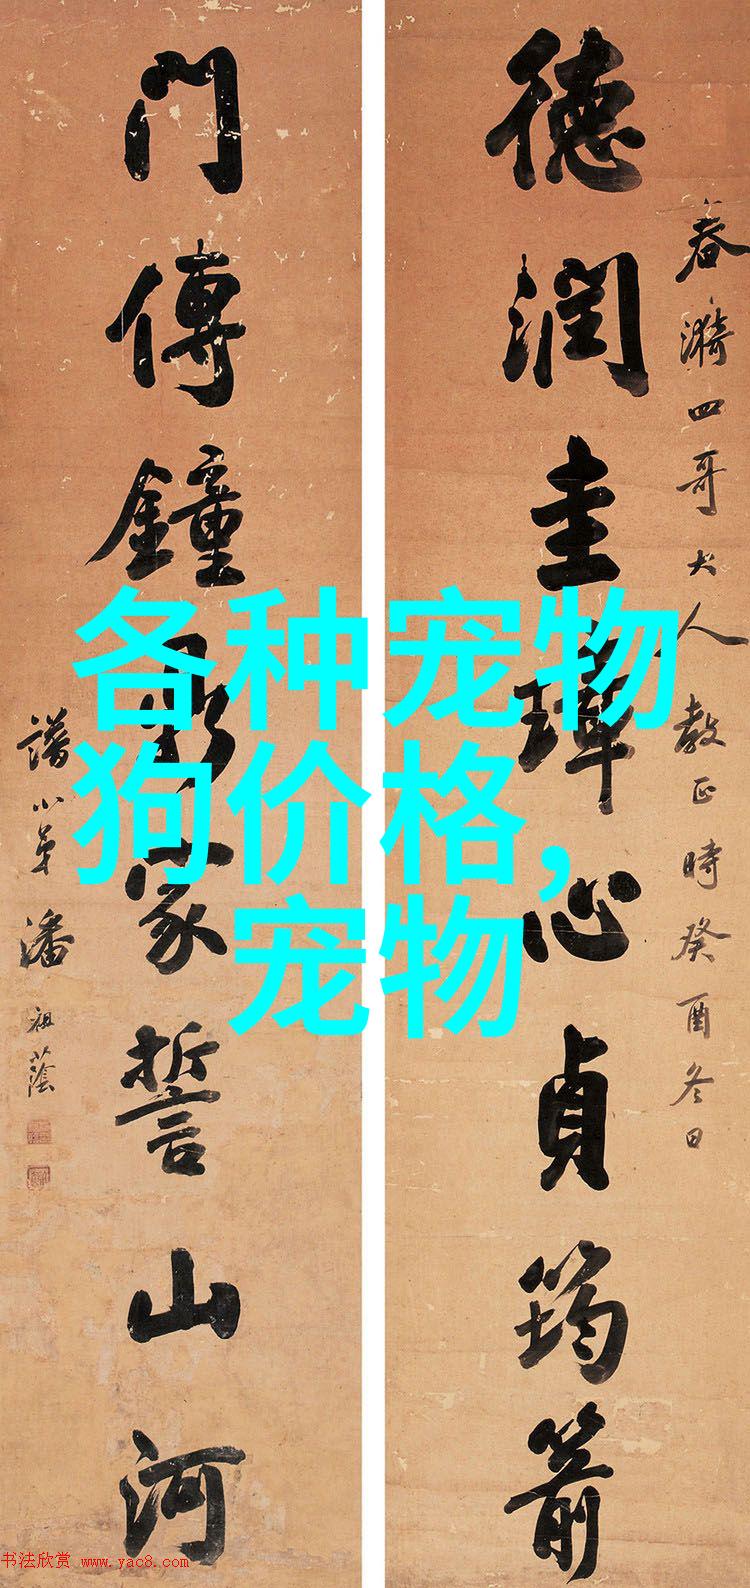 春漪四哥大人教正時癸酉冬日
德潤圭璋心貞筠箭
門傳鐘鼎家誓山河
譜小弟潘祖蔭
各种宠物
狗价格,
宠物
书法欣赏 www.yac8.com